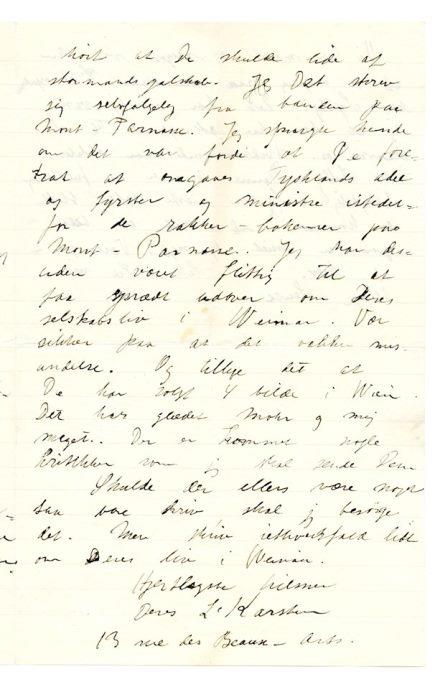 hört at De skulde lide af
stormandsgalskab. Jeg Det skrev
sig selvfølgelig fra banden paa
Mont-Parnasse. Jeg spurgte hende
om det var fordi at De fore-
trak at omgaaes Tysklands adel
og fyrster og ministre istedet-
for de rakker-bohemer paa
Mont-Parnasse. Jeg har des-
uden været flittig til at
faa spredt udover om Deres
selskabsliv i Weimar. Vær
sikker paa at det vækker mis-
undelse. Og tillige det at
De har solgt 4 bilde i Wien.
Det har glædet Mohr og mig
meget. Der er kommet nogle
kritikker som jeg skal sende Dem
Skulde der ellers være noget
saa bare skriv skal jeg besørge
det. Men skriv iethvertfald lidt
om Deres liv i Weimar.
Hjertligste hilsener
Deres L Karsten
13 rue des Beaux-Arts.